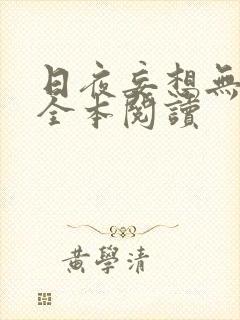 日夜妄想無
全本閱讀
黃學清